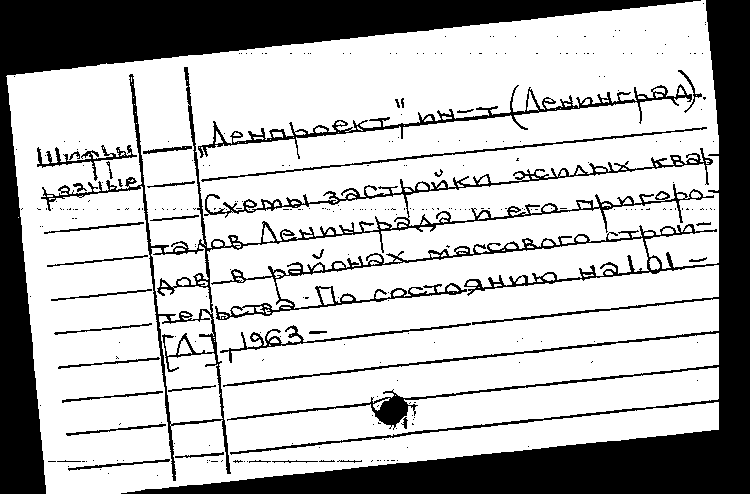 Шифры
разные
„Ленпроект", ин-т (Ленинград).
Схемы застройки жилых квар-
талов Ленинграда и его пригоро-
дов в районах массового строи-
тельства. По состоянию на 1.01 –
[Л.], 1963 –